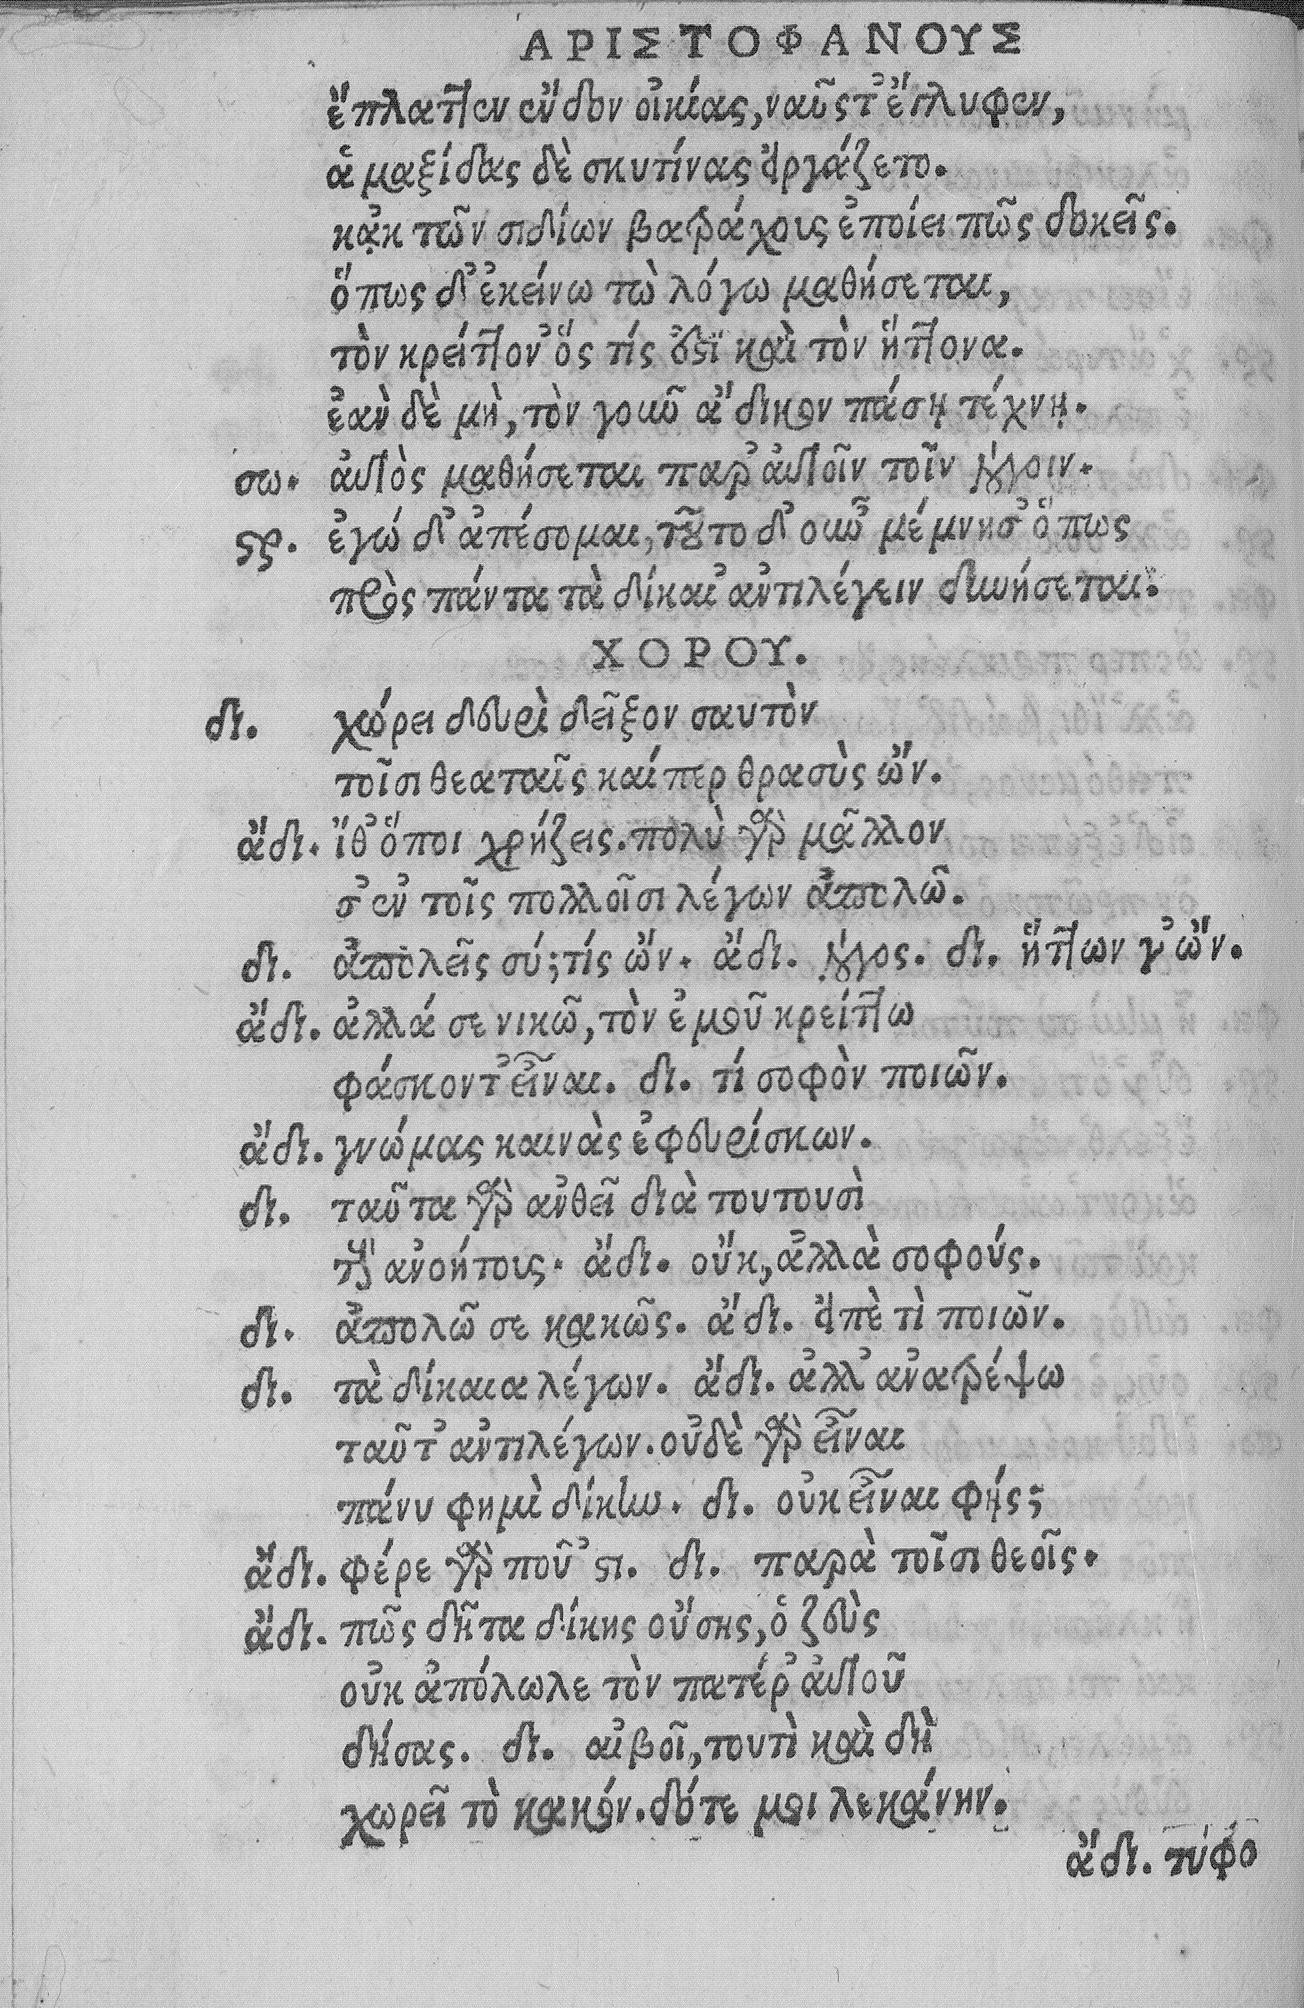 ΑΡΙΣΤΟΦΑΝΟΥΣ
ἔπλατ͂τεν ἔνδον οἰκίας, ναῦς τ᾽ ἔγλυφεν,
ἁμαξίδας δὲ σκυτίνας εἰργάζετο.
κᾀκ τῶν σιδίων βατράχους ἐποίει πῶς δοκεῖς.
ὅπως δ᾽ ἐκείνω τὼ λόγω μαθήσεται,
τὸν κρείττον᾽ ὅς τίς ἐστὶ καὶ τὸν ἥττονα.
ἐὰν δὲ μὴ, τὸν γοῦν ἄδικον πάσῃ τέχνῃ.
σω. αὐτὸς μαθήσεται παρ᾽ αὐτοῖν τοῖν λόγοιν.
στρ. ἐγώ δ᾽ ἀπέσομαι, τοῦτο δ᾽ οὖν μέμνησ᾽ ὅπως
πρὸς πάντα τὰ δίκαι᾽ ἀντιλέγειν δυνήσεται.
ΧΟΡΟΥ.
δι. χώρει δευρὶ δεῖξον σαυτὸν
τοῖσι θεαταῖς καίπερ θρασὺς ὤν.
ἄδι. ἴθ᾽ ὅποι χρήζεις. πολὺ γὰρ μᾶλλον
σ᾽ ἐν τοῖς πολλοῖσι λέγων ἀπολῶ.
δι. ἀπολεῖς σύ; τίς ὤν. ἄδι. λόγος. δι. ἥττων γ᾽ ὤν.
ἄδι. ἀλλά σε νικῶ, τὸν ἐμοῦ κρείττω
φάσκοντ᾽ εἶναι. δι. τί σοφὸν ποιῶν.
ἄδι. γνώμας καινὰς ἐφευρίσκων.
δι. ταῦτα γὰρ ἀνθεῖ διὰ τουτουσὶ
τοὺς ἀνοήτους. ἄδι. οὔκ, ἀλλὰ σοφούς.
δι. ἀπολῶ σε κακῶς. ἄδι. εἰπὲ τὶ ποιῶν.
δι. τὰ δίκαια λέγων. ἄδι. ἀλλ᾽ ἀνατρέψω
ταῦτ᾽ ἀντιλέγων. οὐδὲ γὰρ εἶναι
πάνυ φημὶ δίκην. δι. οὐκ εἶναι φής;
ἄδι. φέρε γὰρ ποῦ ᾽στι. δι. παρὰ τοῖσι θεοῖς.
ἄδι. πῶς δῆτα δίκης οὔσης, ὁ ζεὺς
οὐκ ἀπόλωλε τὸν πατέρ᾽ αὐτοῦ
δήσας. δι. αἰβοῖ, τουτὶ καὶ δὴ
χωρεῖ τὸ κακόν. δότε μοι λεκάνην.
ἄδι. τύφο